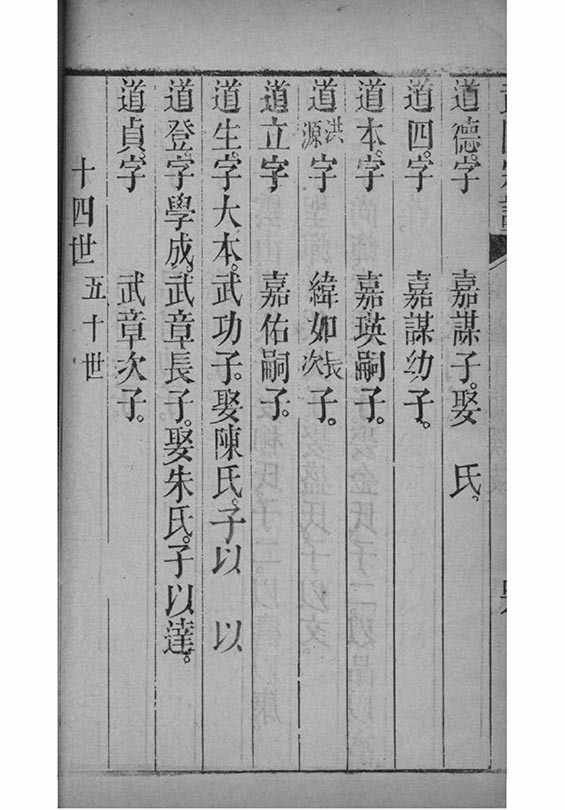 道德。字 嘉謀子。娶 氏。
道四。字 嘉謀幼子。
道本。字 嘉瑛嗣子。
道洪源字 緯如長次子。
道立字 嘉佑嗣子。
道生。字大本。武功子。娶陳氏。子以 以
道登字學成。武章長子。娶朱氏。子以達。
道貞。字 武章次子。
十四世 五十世